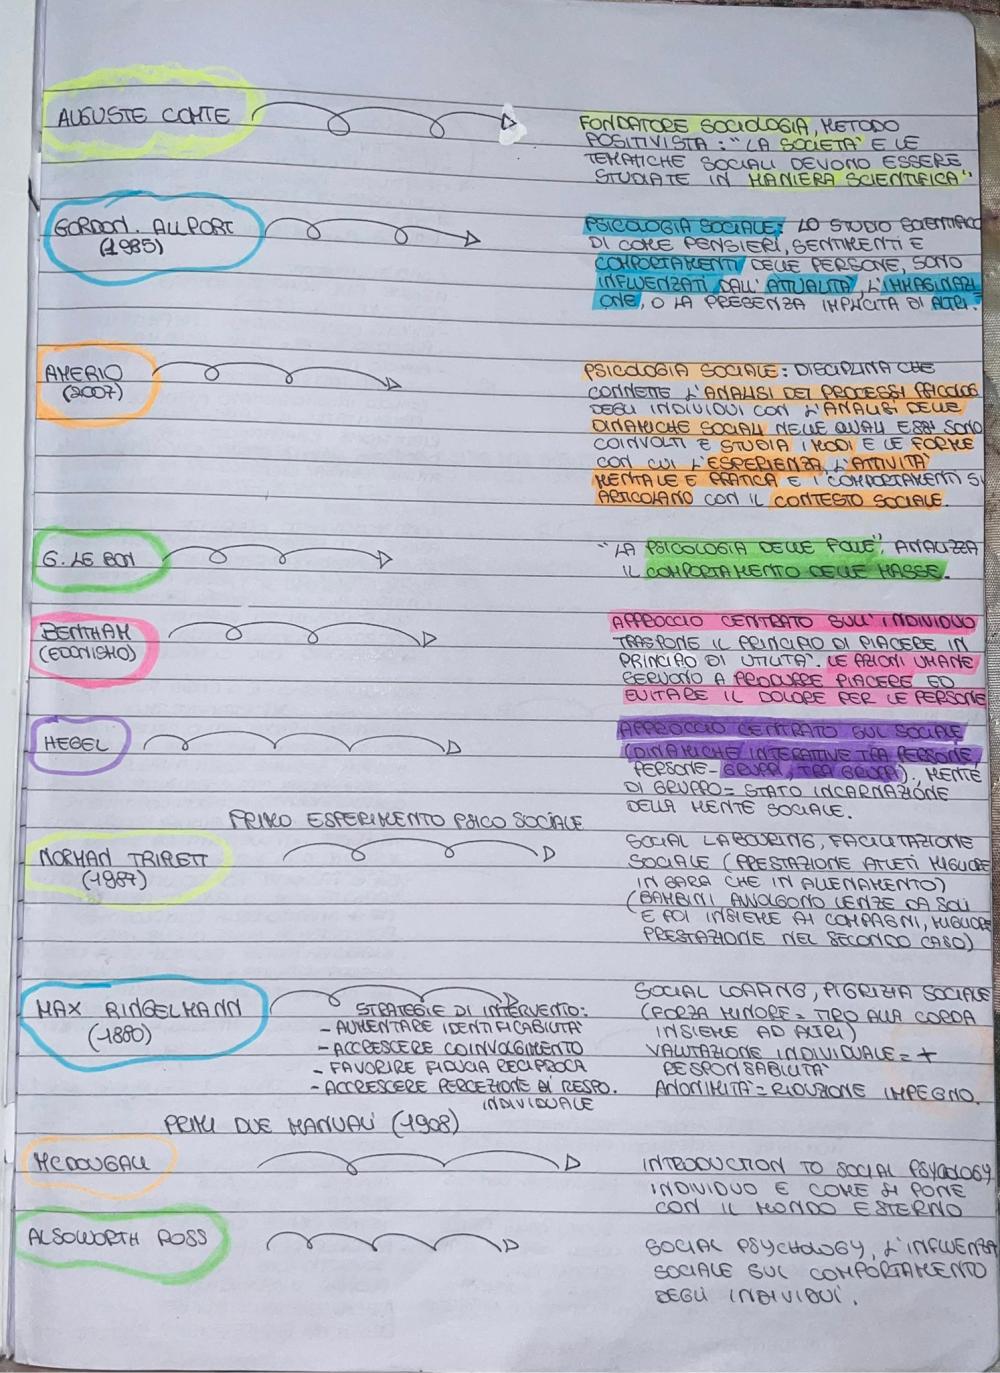 AUGUSTE COMTE
FONDATORE SOCIOLOGIA, METODO
POSITIVISTA: "LA SOCIETA' E LE
TEMATICHE SOCIALI DEVONO ESSERE
STUDIATE IN MANIERA SCIENTIFICA"
GORDON. ALLPORT
(1985)
PSICOLOGIA SOCIALE: LO STUDIO SCIENTIFICO
DI COME PENSIERI, SENTIMENTI E
COMPORTAMENTI DELLE PERSONE, SONO
INFLUENZATI DALL'ATTUALITA', L'IMMAGINAZI
ONE, O LA PRESENZA IMPLICITA DI ALTRI.
AMERIO
(2007)
PSICOLOGIA SOCIALE: DISCIPLINA CHE
CONNETTE L'ANALISI DEI PROCESSI PSICOLOG
DEGLI INDIVIDUI CON L'ANALISI DELLE
DINAMICHE SOCIALI NELLE QUALI ESSI SONO
COINVOLTI E STUDIA I MODI E LE FORME
CON CUI L'ESPERIENZA, L'ATTIVITA'
MENTALE E PRATICA E I COMPORTAMENTI SI
ARTICOLANO CON IL CONTESTO SOCIALE.
G. LE BON
"LA PSICOLOGIA DELLE FOLLE", ANALIZZA
IL COMPORTAMENTO DELLE MASSE.
BENTHAM
(EDONISMO)
APPROCCIO CENTRATO SULL'INDIVIDUO
TRASPONE IL PRINCIPIO DI PIACERE IN
PRINCIPIO DI UTILITA'. LE AZIONI UMANE
SERVONO A PRODURRE PIACERE ED
EVITARE IL DOLORE PER LE PERSONE
HEGEL
APPROCCIO CENTRATO SUL SOCIALE
(DINAMICHE INTERATTIVE TRA PERSONE,
PERSONE-GRUPPI, TRA GRUPPI). MENTE
DI GRUPPO = STATO INCARNAZIONE
DELLA MENTE SOCIALE.
PRIMO ESPERIMENTO PSICO SOCIALE
NORMAN TRIPLETT
(1987)
SOCIAL LABOURING, FACILITAZIONE
SOCIALE (PRESTAZIONE ATLETI MIGLIORE
IN GARA CHE IN ALLENAMENTO)
(BAMBINI AVVOLGONO LENZE DA SOLI
E POI INSIEME AI COMPAGNI, MIGLIORE
PRESTAZIONE NEL SECONDO CASO)
MAX RINGELMANN
(1880)
STRATEGIE DI INTERVENTO:
- AUMENTARE IDENTIFICABILITA'
- ACCRESCERE COINVOLGIMENTO
- FAVORIRE FIDUCIA RECIPROCA
- ACCRESCERE PERCEZIONE DI RESPO.
INDIVIDUALE
SOCIAL LOAFING, PIGRIZIA SOCIALE
(FORZA MINORE = TIRO ALLA CORDA
INSIEME AD ALTRI)
VALUTAZIONE INDIVIDUALE = +
RESPONSABILITA'
ANONIMITA' = RIDUZIONE IMPEGNO.
PRIMI DUE MANUALI (1908)
MCDOUGALL
INTRODUCTION TO SOCIAL PSYCOLOGY
INDIVIDUO E COME SI PONE
CON IL MONDO ESTERNO
ALSOWORTH ROSS
SOCIAL PSYCHOLOGY, L'INFLUENZA
SOCIALE SUL COMPORTAMENTO
DEGLI INDIVIDUI.